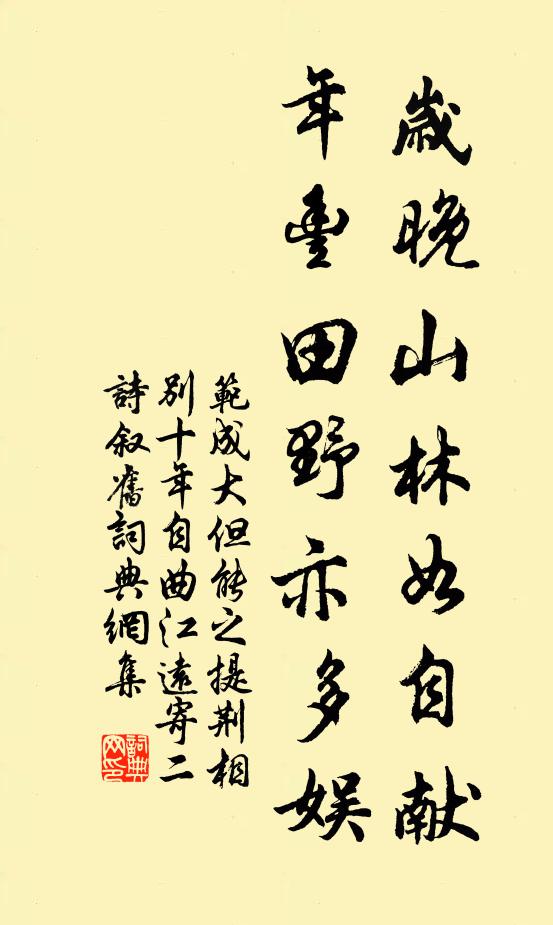 歲晚山林如自献
年豊田野亦多娱
範成大但能之提荆相
别十年自曲江遠寄二
詩叙舊詞典網集
詞典網印